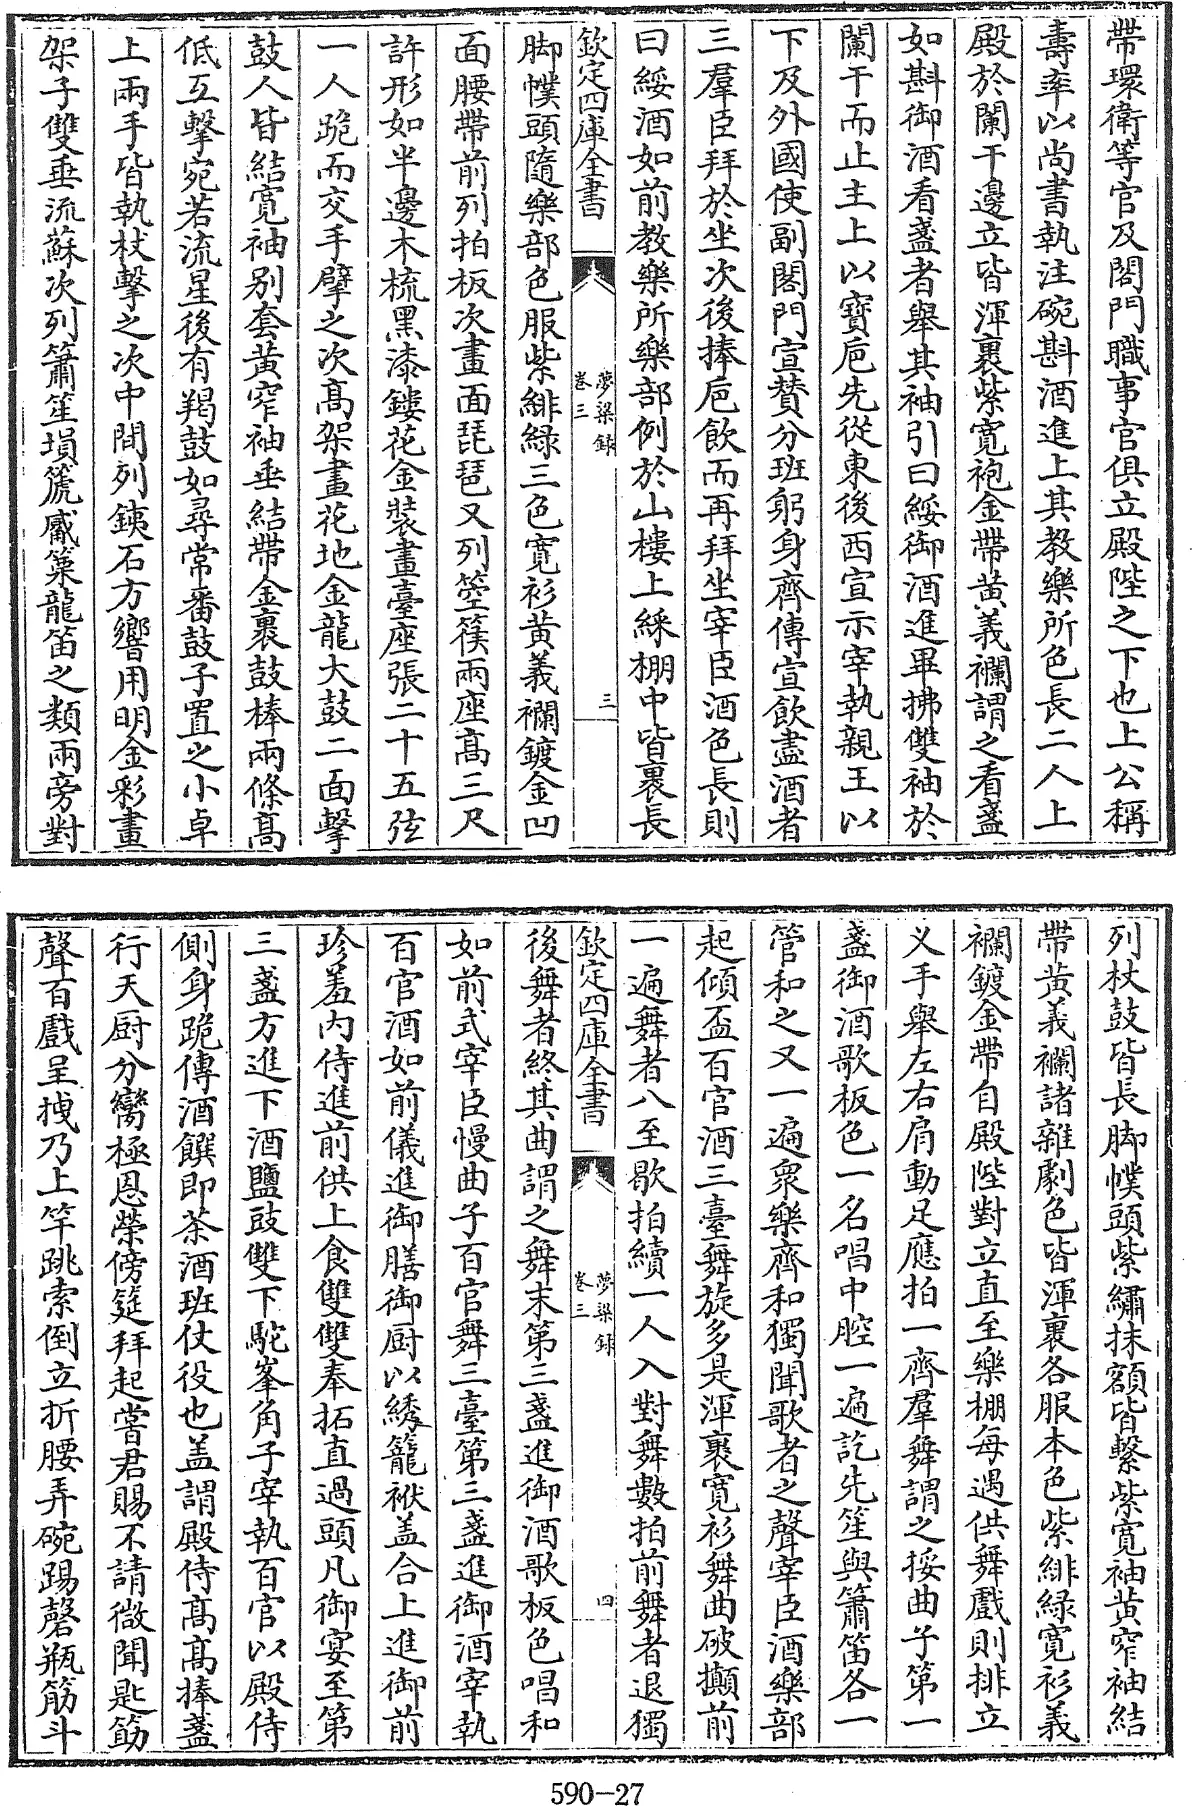 帶環衛等官及閤門職事官俱立殿陛之下也上公稱
壽率以尚書執注碗斟酒進上其教樂所色長二人上
殿於闌干邊立皆渾裹紫寬袍金帶黄義襴謂之看盞
如斟御酒看盞者舉其袖引曰綏御酒進畢拂雙袖於
闌干而止主上以寶巵先從東後西宣示宰執親王以
下及外國使副閤門宣贊分班躬身齊傳宣飲盡酒者
三羣臣拜於坐次後捧巵飲而再拜坐宰臣酒色長則
曰綏酒如前教樂所樂部例於山樓上綵棚中皆裹長
欽定四庫全書 夢粱録 卷三 三
脚幞頭隨樂部色服紫緋綠三色寬衫黄義襴鍍金凹
面腰帶前列拍板次畫面琵琶又列箜篌兩座髙三尺
許形如半邊木梳黑漆鏤花金裝畫臺座張二十五弦
一人跪而交手擘之次髙架畫花地金龍大鼓二面擊
鼓人皆結寛袖别套黄窄袖垂結帶金裹鼓棒兩條髙
低互擊宛若流星後有羯鼓如尋常番鼓子置之小卓
上兩手皆執杖擊之次中間列銕石方響用明金彩畫
架子雙垂流蘇次列簫笙塤篪觱篥龍笛之類兩旁對
列杖鼓皆長脚幞頭紫繡抹額皆繫紫寛袖黄窄袖結
帶黄義襴諸雜劇色皆渾裹各服本色紫緋綠寛衫義
襴鍍金帶自殿陛對立直至樂棚每遇供舞戲則排立
义手舉左右肩動足應拍一齊羣舞謂之挼曲子第一
盞御酒歌板色一名唱中腔一遍訖先笙與簫笛各一
管和之又一遍衆樂齊和獨聞歌者之聲宰臣酒樂部
起傾盃百官酒三臺舞旋多是渾裹寛衫舞曲破攧前
一遍舞者入至歇拍續一人入對舞數拍前舞者退獨
欽定四庫全書 夢粱録 卷三 四
後舞者終其曲謂之舞末第二盞進御酒歌板色唱和
如前式宰臣慢曲子百官舞三臺第三盞進御酒宰執
百官酒如前儀進御膳御厨以綉籠袱盖合上進御前
珍羞内侍進前供上食雙雙奉拓直過頭凡御宴至第
三盞方進下酒鹽豉雙下駝峯角子宰執百官以殿侍
側身跪傳酒饌即茶酒班仗役也盖謂殿侍髙髙捧盞
行天厨分臠極恩榮傍筵拜起嘗君賜不請㣲聞匙筯
聲百戲呈拽乃上竿跳索倒立折腰弄碗踢磬瓶筋斗
590-27